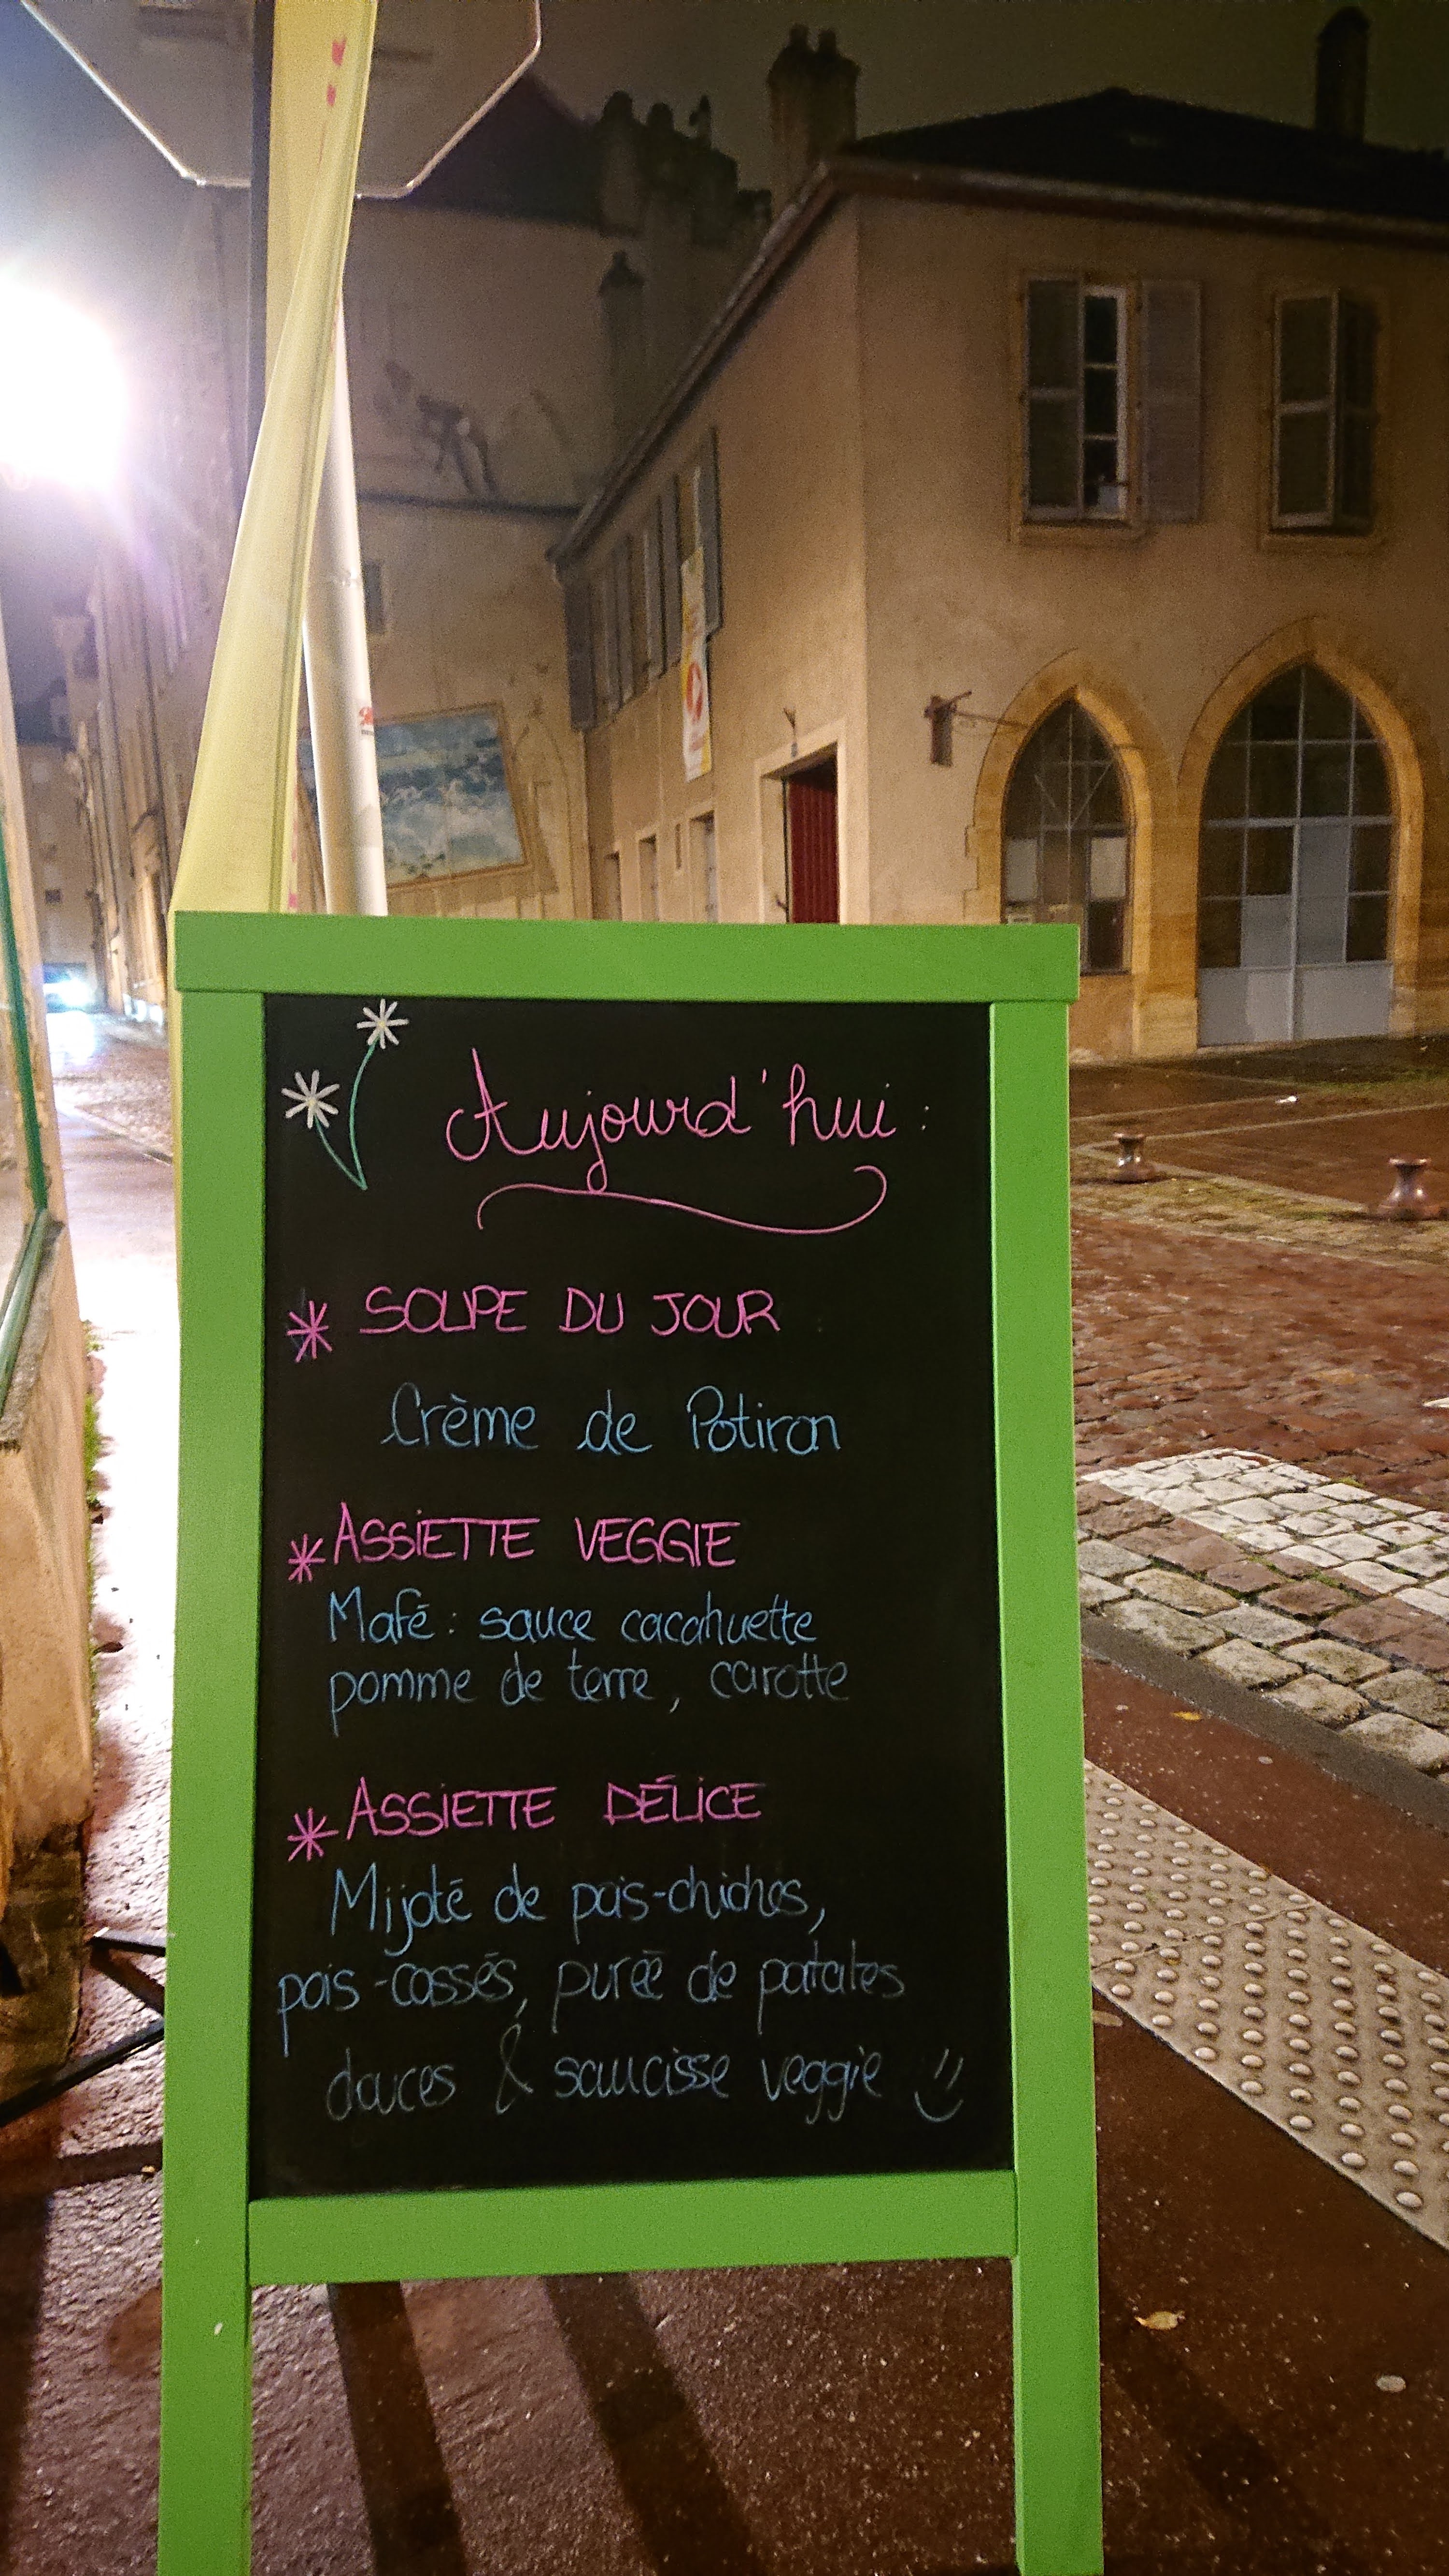 Aujourd'hui :
* SOUPE DU JOUR
Crème de Potiron
* ASSIETTE VEGGIE
Mafé : sauce cacahuette
pomme de terre, carotte
* ASSIETTE DÉLICE
Mijoté de pois-chiches,
pois-cassés, purée de patates
douces & saucisse veggie